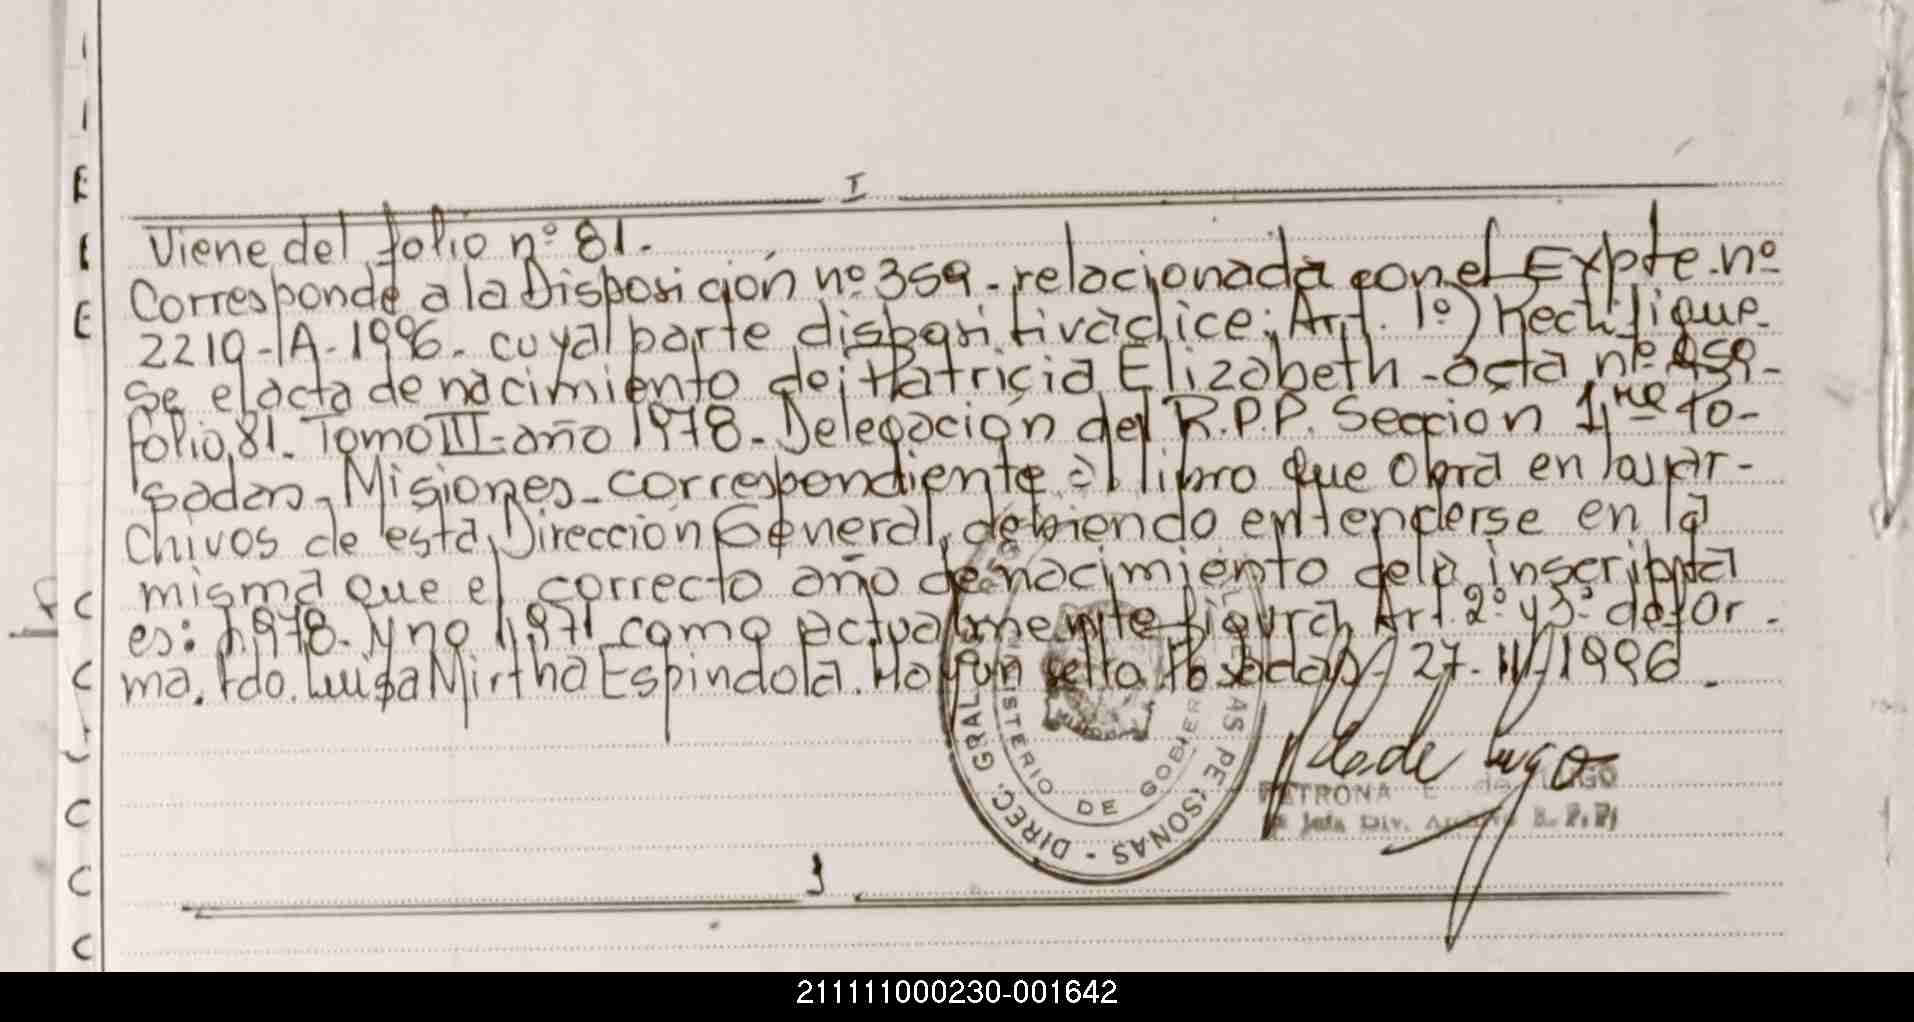 I
Viene del folio nº 81.
Corresponde a la Disposición nº 359 - relacionada con el Expte. nº
2219-A-1996. cuya parte dispositiva dice: Art. 1º) Rectifique-
se el acta de nacimiento de: Patricia Elizabeth - acta nº 459-
folio 81. Tomo III - año 1978. Delegación del R.P.P. Sección 1ra Po-
sadas. Misiones - correspondiente al libro que obra en los ar-
chivos de esta Dirección General, debiendo entenderse en la
misma que el correcto año de nacimiento de la inscripta
es: 1.978. y no 1.971 como actualmente figura Art. 2º y 3º de for-
ma. Fdo. Luisa Mirtha Espindola. Hay un sello Posadas 27-11-1996.
DIREC. GRAL. PERSONAS
MINISTERIO DE GOBIERNO
PETRONA E de LUGO
Jefa Div. R.P.P.
211111000230-001642